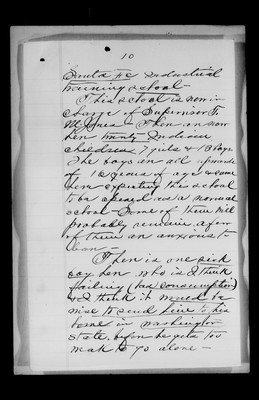 10
Santa Fe Industrial
training school -
This school is now in
charge of Supervisor
Jones - There are now
here Indian
children, 7 girls & 13 boys.
The boys in all upwards
of 16 years of age & came
here expecting this school
to be opened as a normal
school - Some of them will
probably remain, a few
of them are anxious to
- 
There is one sick
boy here who is I think
failing (has consumption)
& I think it would be
wise to send him to his
home in Washington
State, before he gets too
weak to go alone -